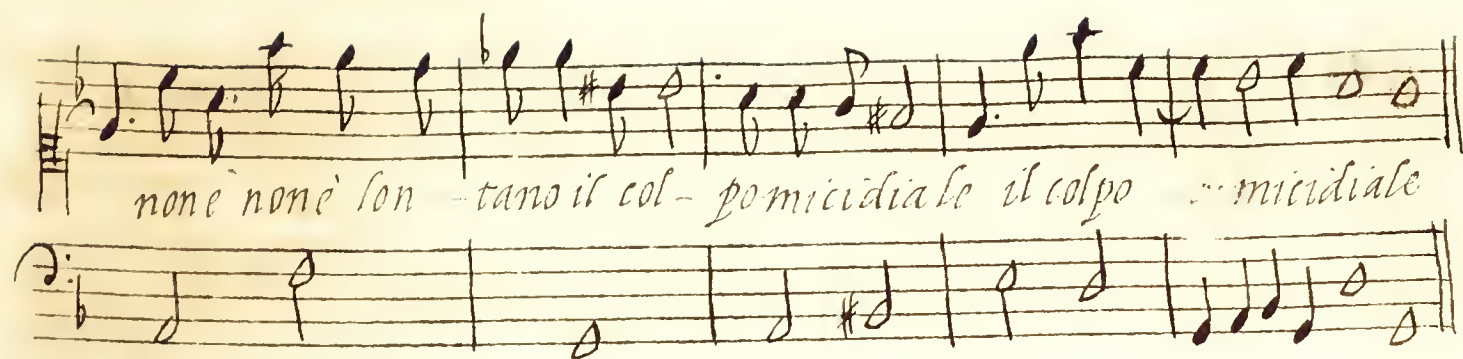 non è non è lon - tano il col - po micidiale il colpo micidiale